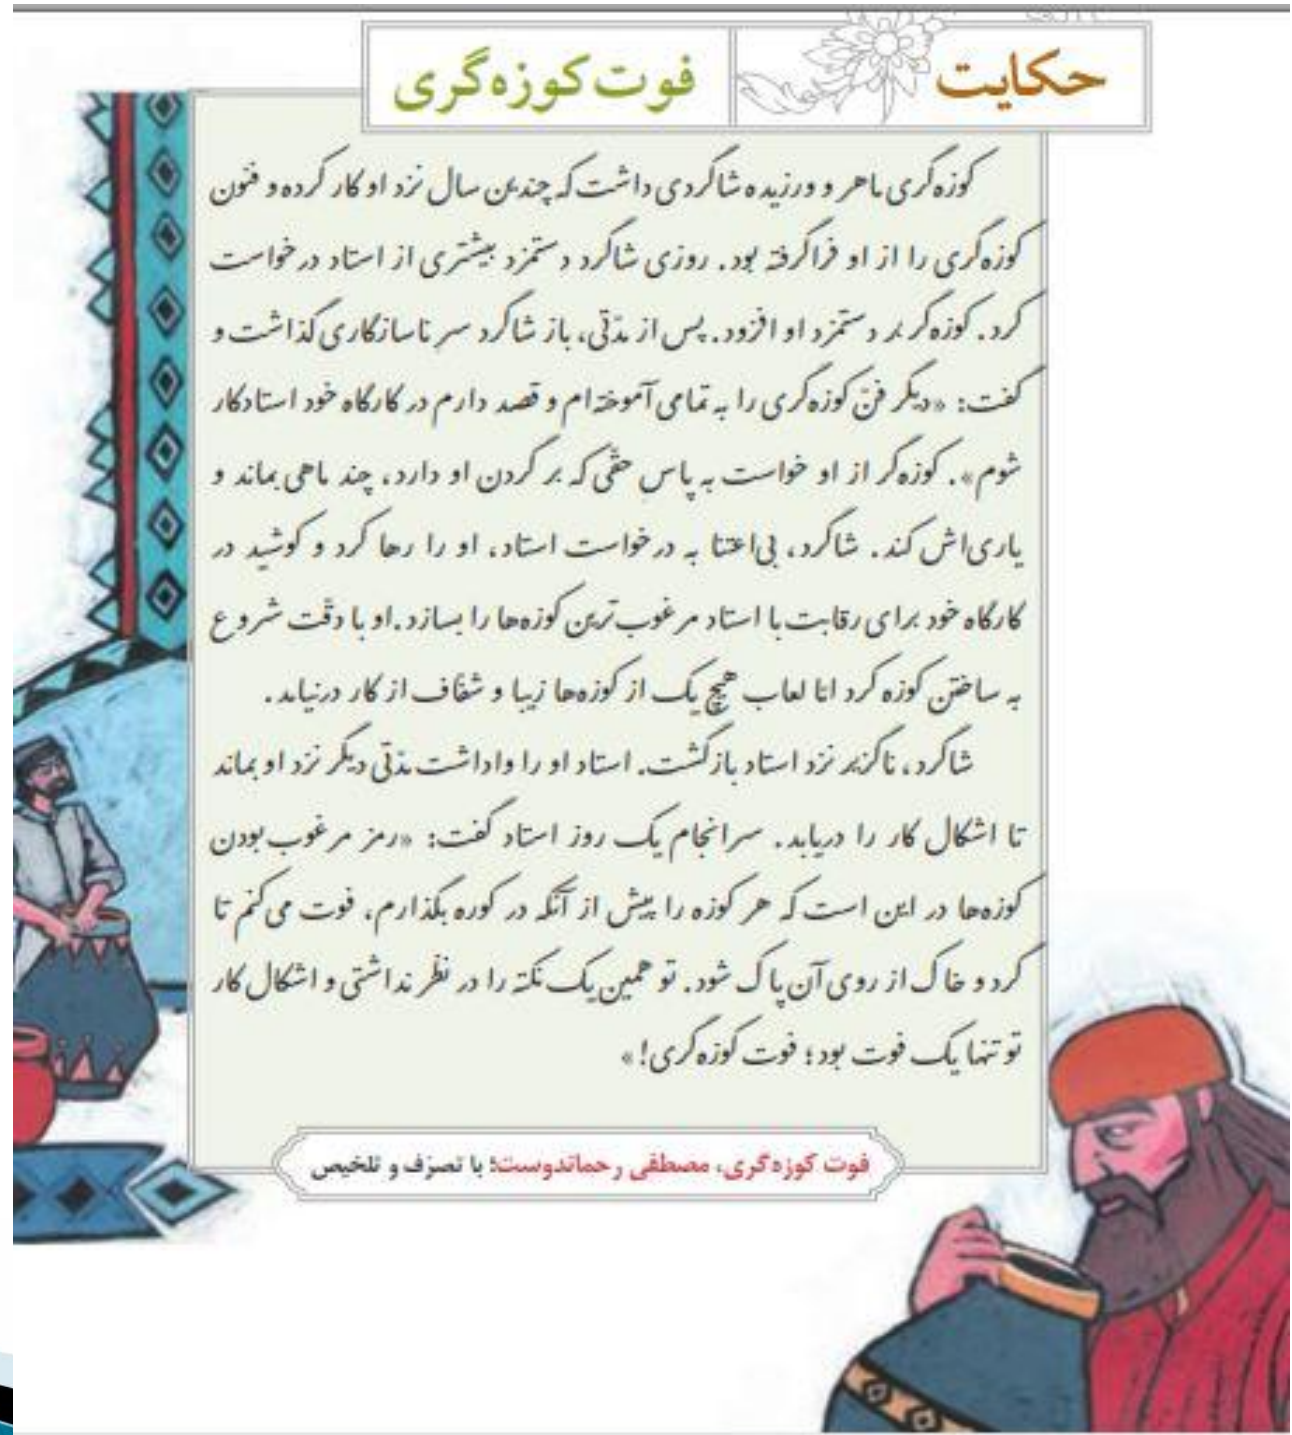 حکایت
فوت کوزه‌گری
کوزه‌گری ماهر و ورزیده شاگردی داشت که چندین سال نزد او کار کرده و فنون
کوزه‌گری را از او فراگرفته بود. روزی شاگرد دستمزد بیشتری از استاد درخواست
کرد. کوزه‌گر بر دستمزد او افزود. پس از مدّتی، باز شاگرد سر ناسازگاری گذاشت و
گفت: «دیگر فنّ کوزه‌گری را به تمامی آموخته‌ام و قصد دارم در کارگاه خود استادکار
شوم». کوزه‌گر از او خواست به پاس حقّی که بر گردن او دارد، چند ماهی بماند و
یاری‌اش کند. شاگرد، بی‌اعتنا به درخواست استاد، او را رها کرد و کوشید در
کارگاه خود برای رقابت با استاد مرغوب‌ترین کوزه‌ها را بسازد. او با دقّت شروع
به ساختن کوزه کرد امّا لعاب هیچ یک از کوزه‌ها زیبا و شفّاف از کار درنیامد.
شاگرد، ناگزیر نزد استاد بازگشت. استاد او را واداشت مدّتی دیگر نزد او بماند
تا اشکال کار را دریابد. سرانجام یک روز استاد گفت: «رمز مرغوب بودن
کوزه‌ها در این است که هر کوزه را پیش از آنکه در کوره بگذارم، فوت می‌کنم تا
گرد و خاک از روی آن پاک شود. تو همین یک نکته را در نظر نداشتی و اشکال کار
تو تنها یک فوت بود؛ فوت کوزه‌گری!»
فوت کوزه‌گری، مصطفی رحماندوست؛ با تصرّف و تلخیص